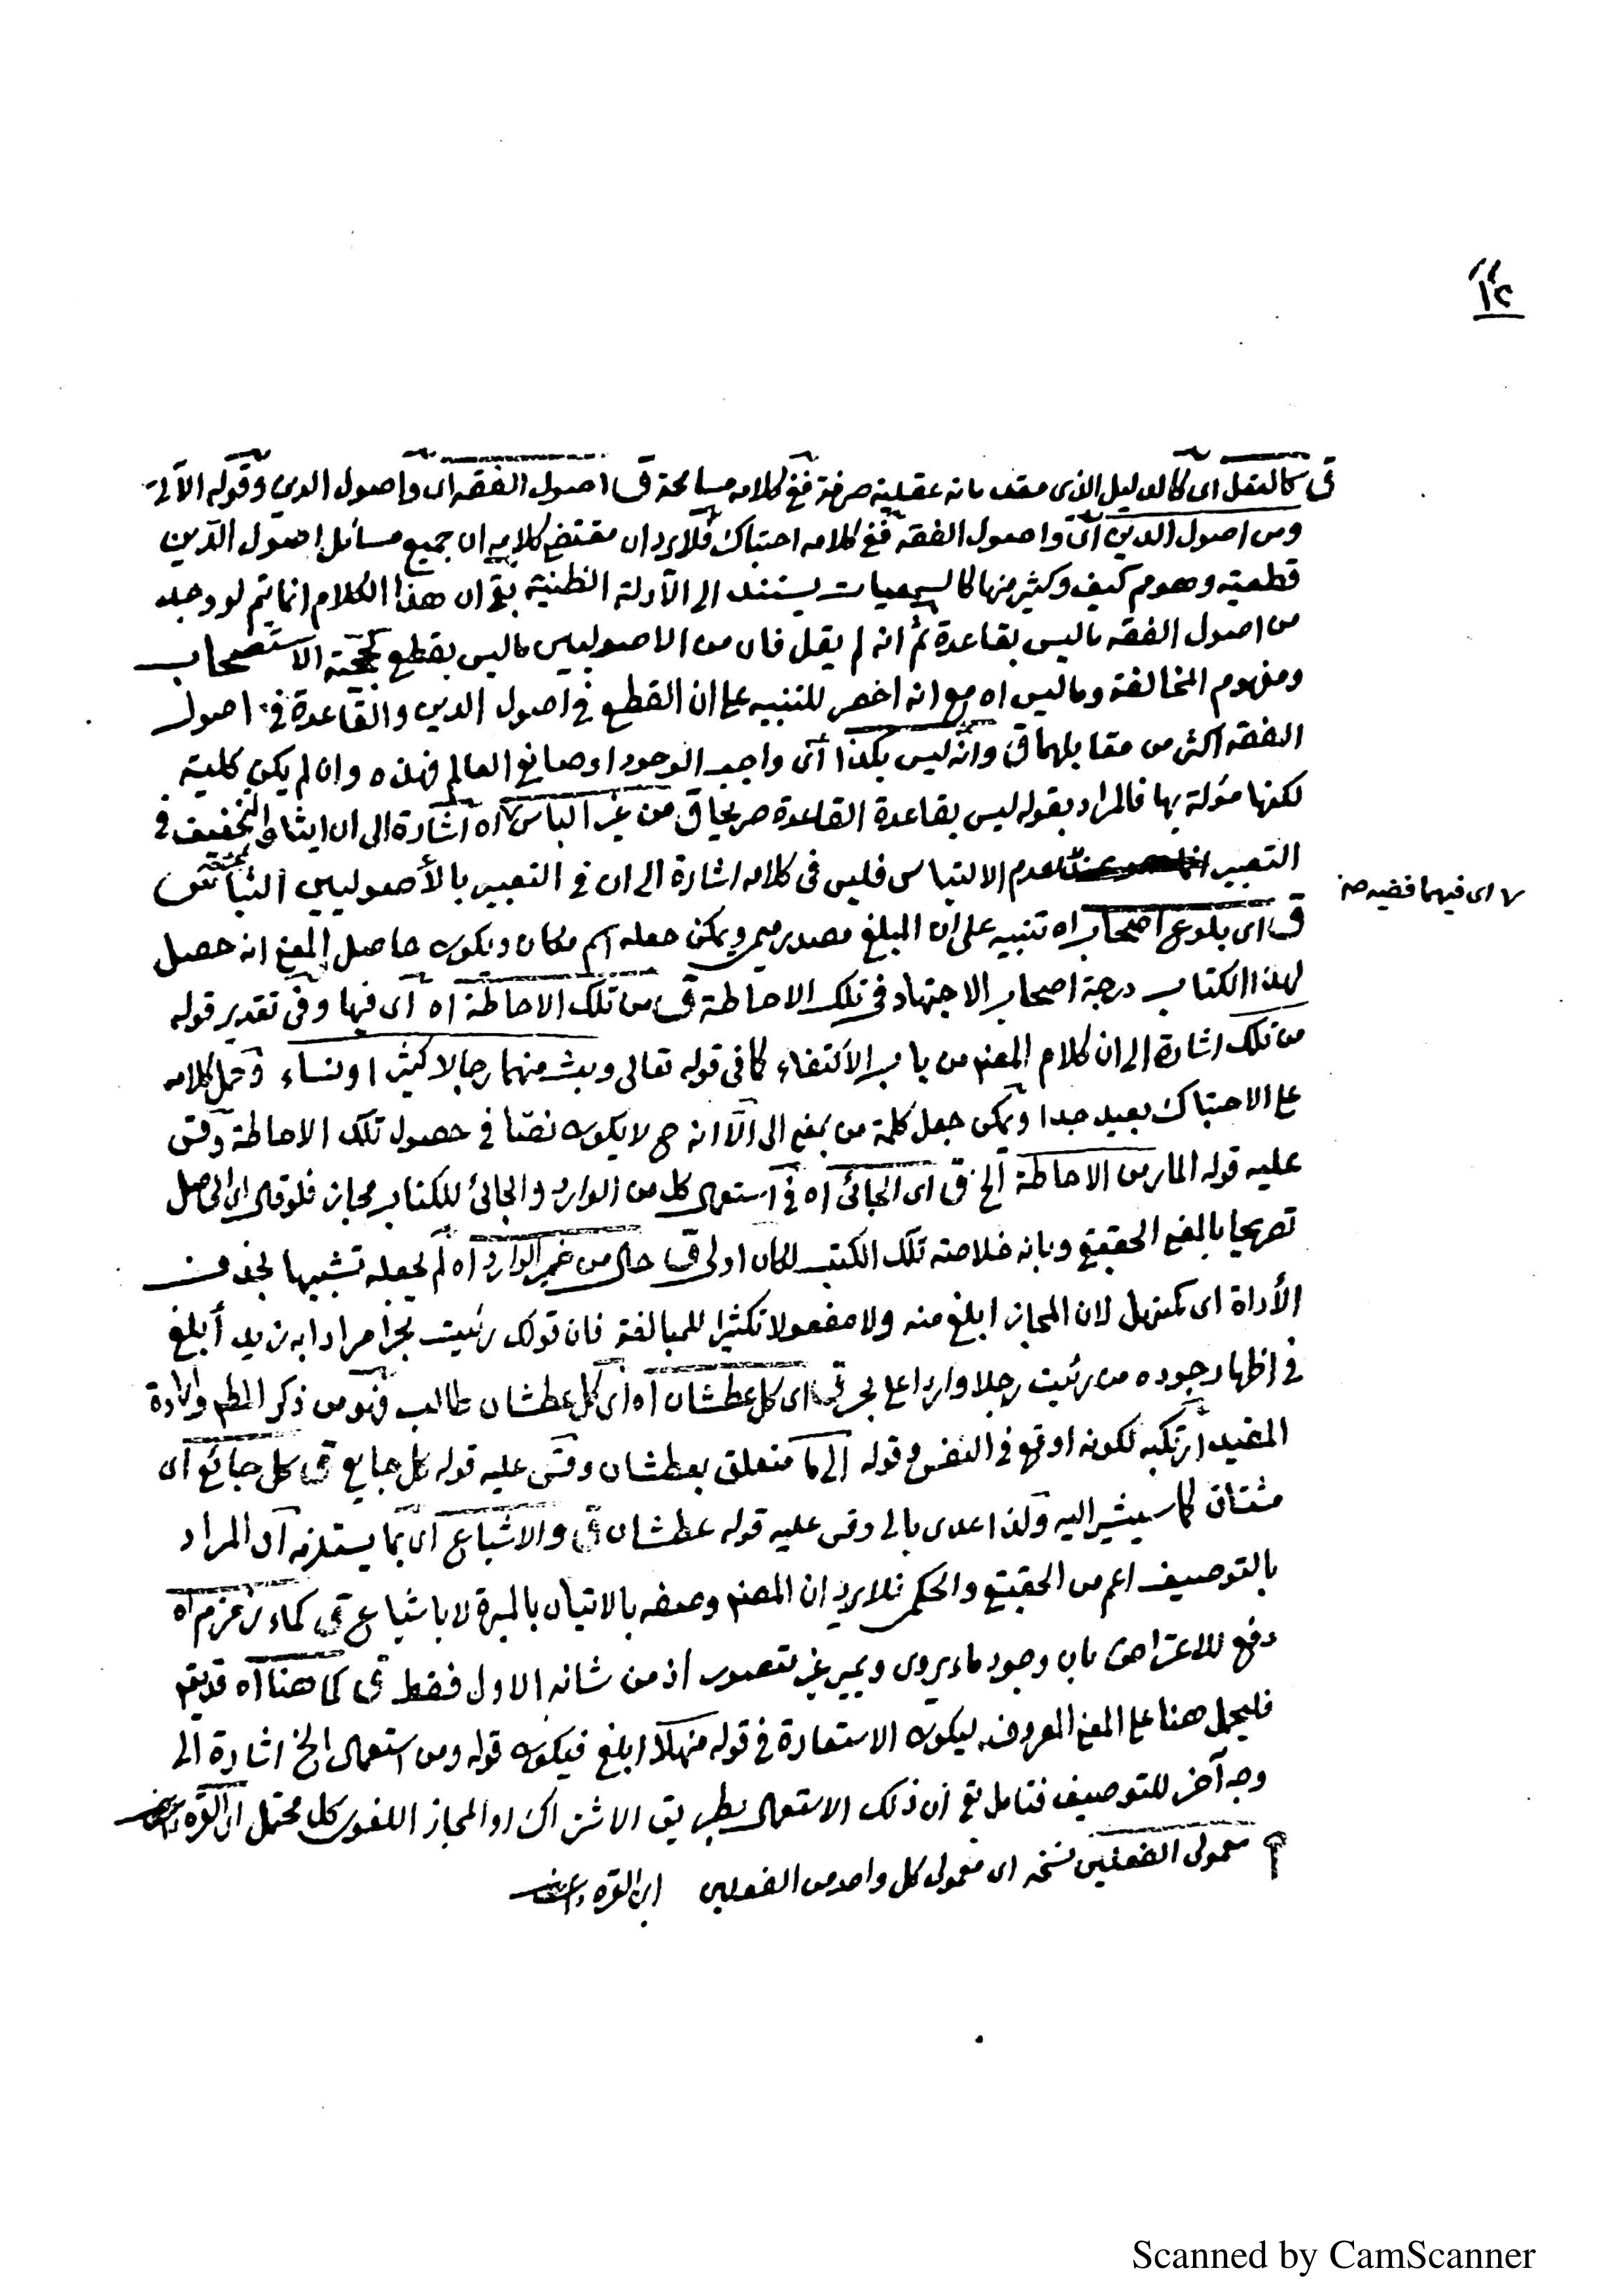 ١٢
قى كالعقل اى كالدليل الذى مقدماته عقلية صرفة ففى كلامه مسامحة قى اصول الفقه اى واصول الدين وقوله الآتى
ومن اصول الدين اى واصول الفقه ففى كلامه احتباك فلا يرد ان مقتضى كلامه ان جميع مسائل اصول الدين
قطعية وهو مم كيف وكثير منها كالسمعيات يستند الى الآدلة الظنية بقى ان هذا الكلام انما يتم لو وجد
من اصول الفقه ماليس بقاعدة ثم انه لم يقل فان من الاصوليين ماليس بقطعى كحجية الاستصحاب
ومفهوم المخالفة وماليس اه مع انه اخصر للتنبيه على ان القطعى فى اصول الدين والقاعدة فى اصول
الفقه اكثر من مقابلهما قى وانه ليس بكذا اى واجب الوجود او صانع العالم فهذه وان لم يكن كلية
لكنها مؤلة بها فالمراد بقوله ليس بقاعدة القاعدة صريحا قى من غير الباس اه اشارة الى ان ايثار التخفيف فى
التعبير لعدم الالتباس فليس فى كلامه اشارة الى ان فى التعبير بالأصوليين التباس
٧ اى فيهما ففيه صنـ
قى اى بلوغ اصحاب اه تنبيه على ان المبلغ مصدر ميمى ويمكن جعله اسم مكان ويكون حاصل المعنى انه حصل
لهذا الكتاب درجة اصحاب الاجتهاد فى تلك الاحاطة قى من تلك الاحاطة اه اى فيها وفى تقدير قوله
من تلك اشارة الى ان كلام المصنف من باب الاكتفاء كما فى قوله تعالى وبث منهما رجالا كثيرا ونساء وحمل كلامه
على الاحتباك بعيد جدا ويمكن جعل كلمة من بمعنى الى الّا انه ح لا يكون نصّا فى حصول تلك الاحاطة وقس
عليه قوله المار من الاحاطة الخ قى اى الجائى اه فى استعمال كل من الوارد والجائى للكتاب مجاز فلو قال اى الحاصل
تصريحا بالمعنى الحقيقى وبانه خلاصة تلك الكتب لكان اولى قى حال من ضمير الوارد اه لم يجعله تشبيها بحذف
الأداة اى كمنهل لان المجاز ابلغ منه ولا مفعولا تكثيرا للمبالغة فان قولك رئيت بحرا مرادا به زيد أبلغ
فى اظهار جوده من رئيت رجلا واردا على بحر قى اى كل عطشان اه اى كل عطشان طالب فهو من ذكر المطلق وارادة
المقيد ارتكبه لكونه اوقع فى النفس وقوله الى ما متعلق بعطشان وقس عليه قوله كل جايع قى كل جائع اى
مشتاق كما سيشير اليه ولذا عدى بالى وقس عليه قوله عطشان قى والاشباع اى بما يستلزمه او المراد
بالتوصيف اعم من الحقيقى والحكمى فلا يرد ان المصنف وصفه بالاتيان بالميرة لا باشباع قى كماء زمزم اه
دفع للاعتراض بان وجود ماء يروى ويمير غير متصور اذ من شانه الاول فقط قى كما هنا اه قد يقم
فليحمل هنا على المعنى المعروف ليكون الاستعارة فى قوله منهلا ابلغ فيكون قوله ومن استعمال الخ اشارة الى
وجه آخر للتوصيف فتامل بقى أن ذلك الاستعمال بطريق الاشتراك او المجاز اللغوى كل محتمل ابن القره داغى
معمولى الفعلين نسخه اى معمولى كل واحد من الفعلين ابن القره داغى
Scanned by CamScanner